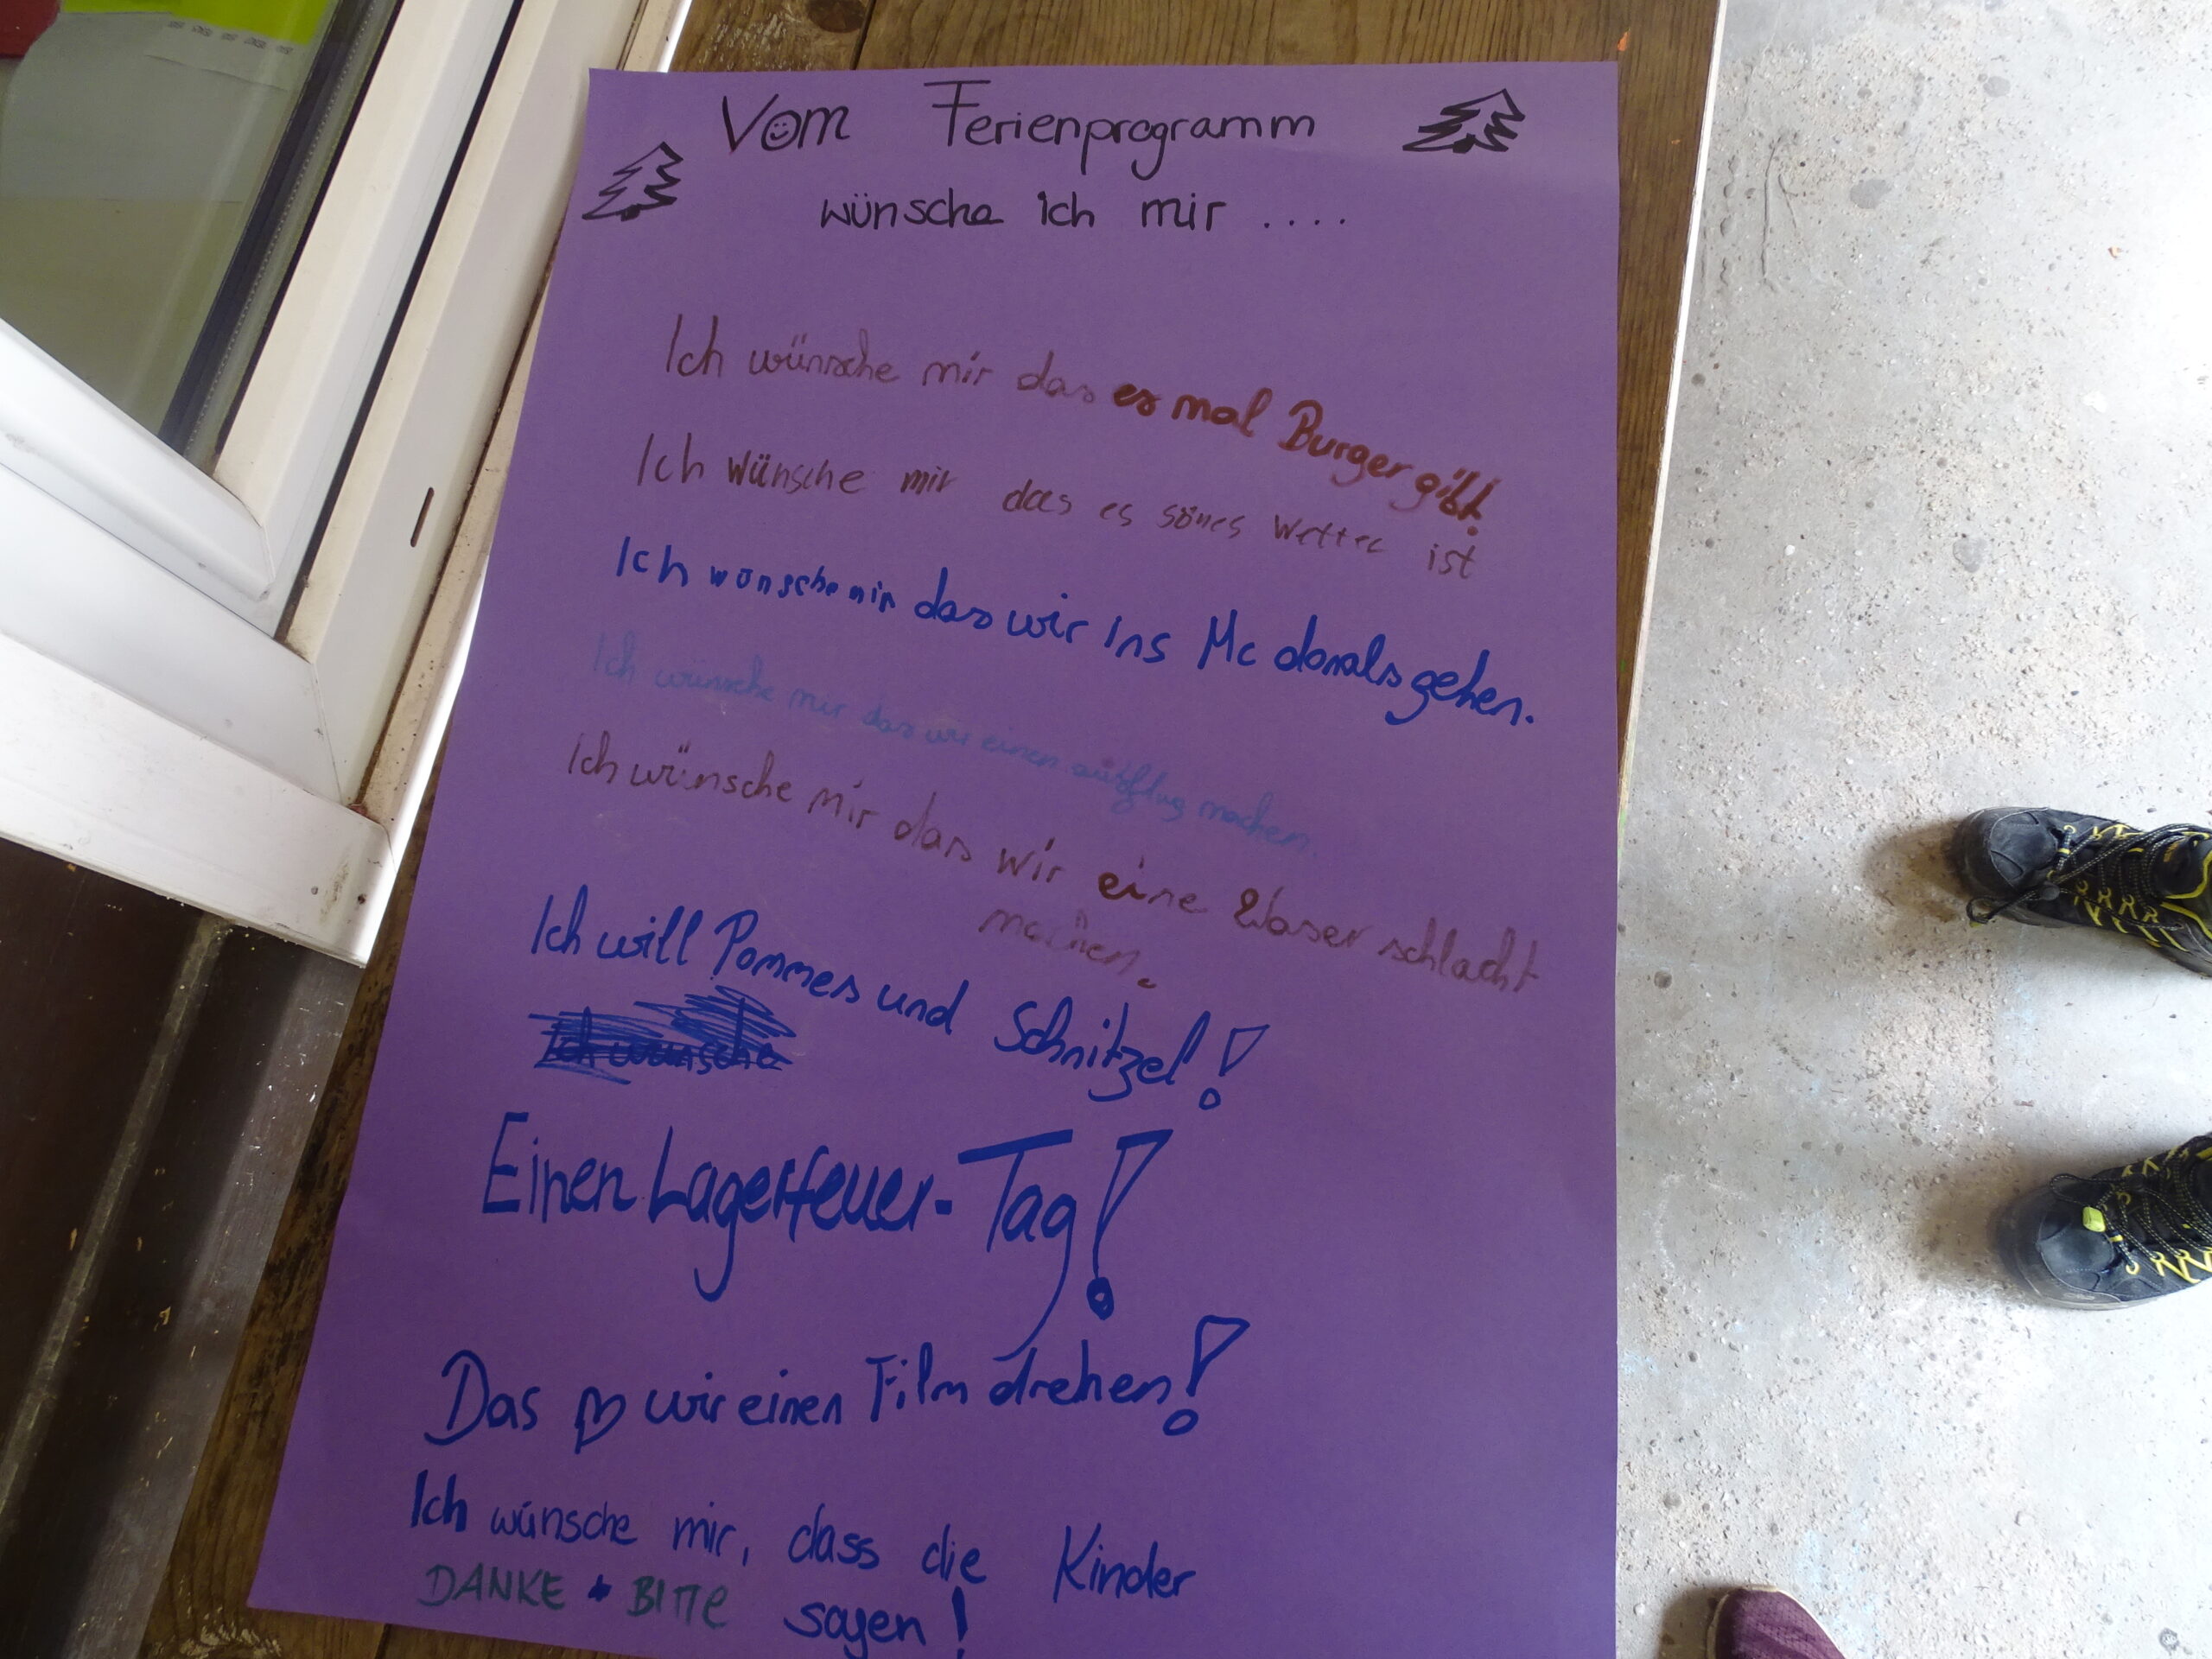 Vom Ferienprogramm
wünsche ich mir ....
Ich wünsche mir das es mal Burger gibt!
Ich wünsche mir das es sönes Wetter ist
Ich wünsche mir das wir ins Mc donals gehen.
Ich wünsche mir das wir einen ausflug machen.
Ich wünsche mir das wir eine Waser schlacht
machen.
Ich will Pommes und Schnitzel!
Ich wünsche
Einen Lagerfeuer-Tag!
Das wir einen Film drehen!
Ich wünsche mir, dass die Kinder
DANKE + BITTE sagen!